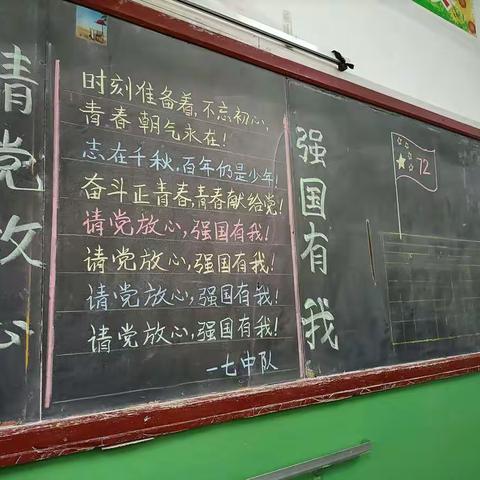 请党放心
时刻准备着,不忘初心,
青春朝气永在!
志在千秋,百年仍是少年!
奋斗正青春,青春献给党!
请党放心,强国有我!
请党放心,强国有我!
请党放心,强国有我!
请党放心,强国有我!
一七中队
强国有我
72